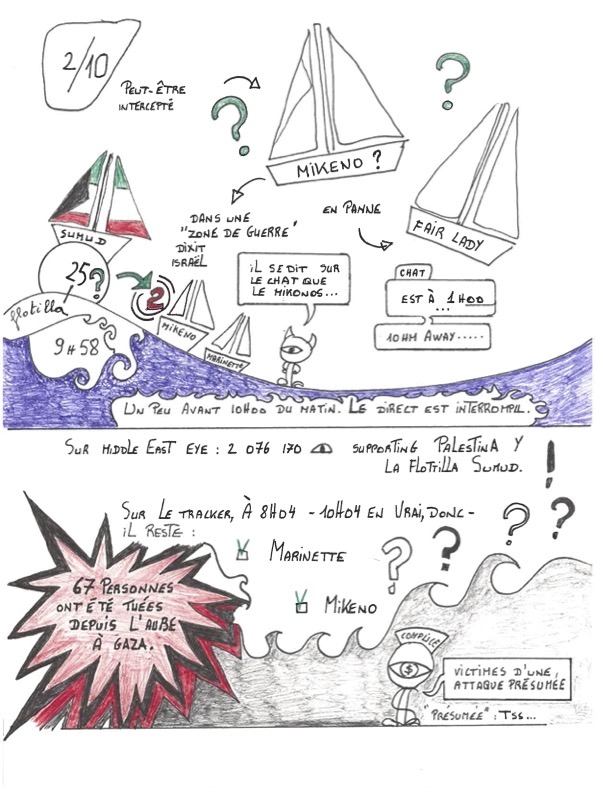 2/10
PEUT-ÊTRE
INTERCEPTÉ
?
?
MIKENO ?
DANS UNE
"ZONE DE GUERRE"
DIXIT
ISRAËL
EN PANNE
FAIR LADY
SUMUD
25 ?
flotilla
9H58
2
MIKENO
MARINETTE
IL SE DIT SUR
LE CHAT QUE
LE MIKONOS...
CHAT
EST À 1H00
...
10HM AWAY.....
UN PEU AVANT 10H00 DU MATIN. LE DIRECT EST INTERROMPU.
SUR MIDDLE EAST EYE : 2 076 170 SUPPORTING PALESTINA Y
LA FLOTILLA SUMUD.
!
SUR LE TRACKER, À 8H04 - 10H04 EN VRAI, DONC -
IL RESTE :
MARINETTE
MIKENO
? ? ? ?
67 PERSONNES
ONT ÉTÉ TUÉES
DEPUIS L'AUBE
À GAZA.
COMPLICE
$
VICTIMES D'UNE
ATTAQUE PRÉSUMÉE
"PRÉSUMÉE" : TSS...